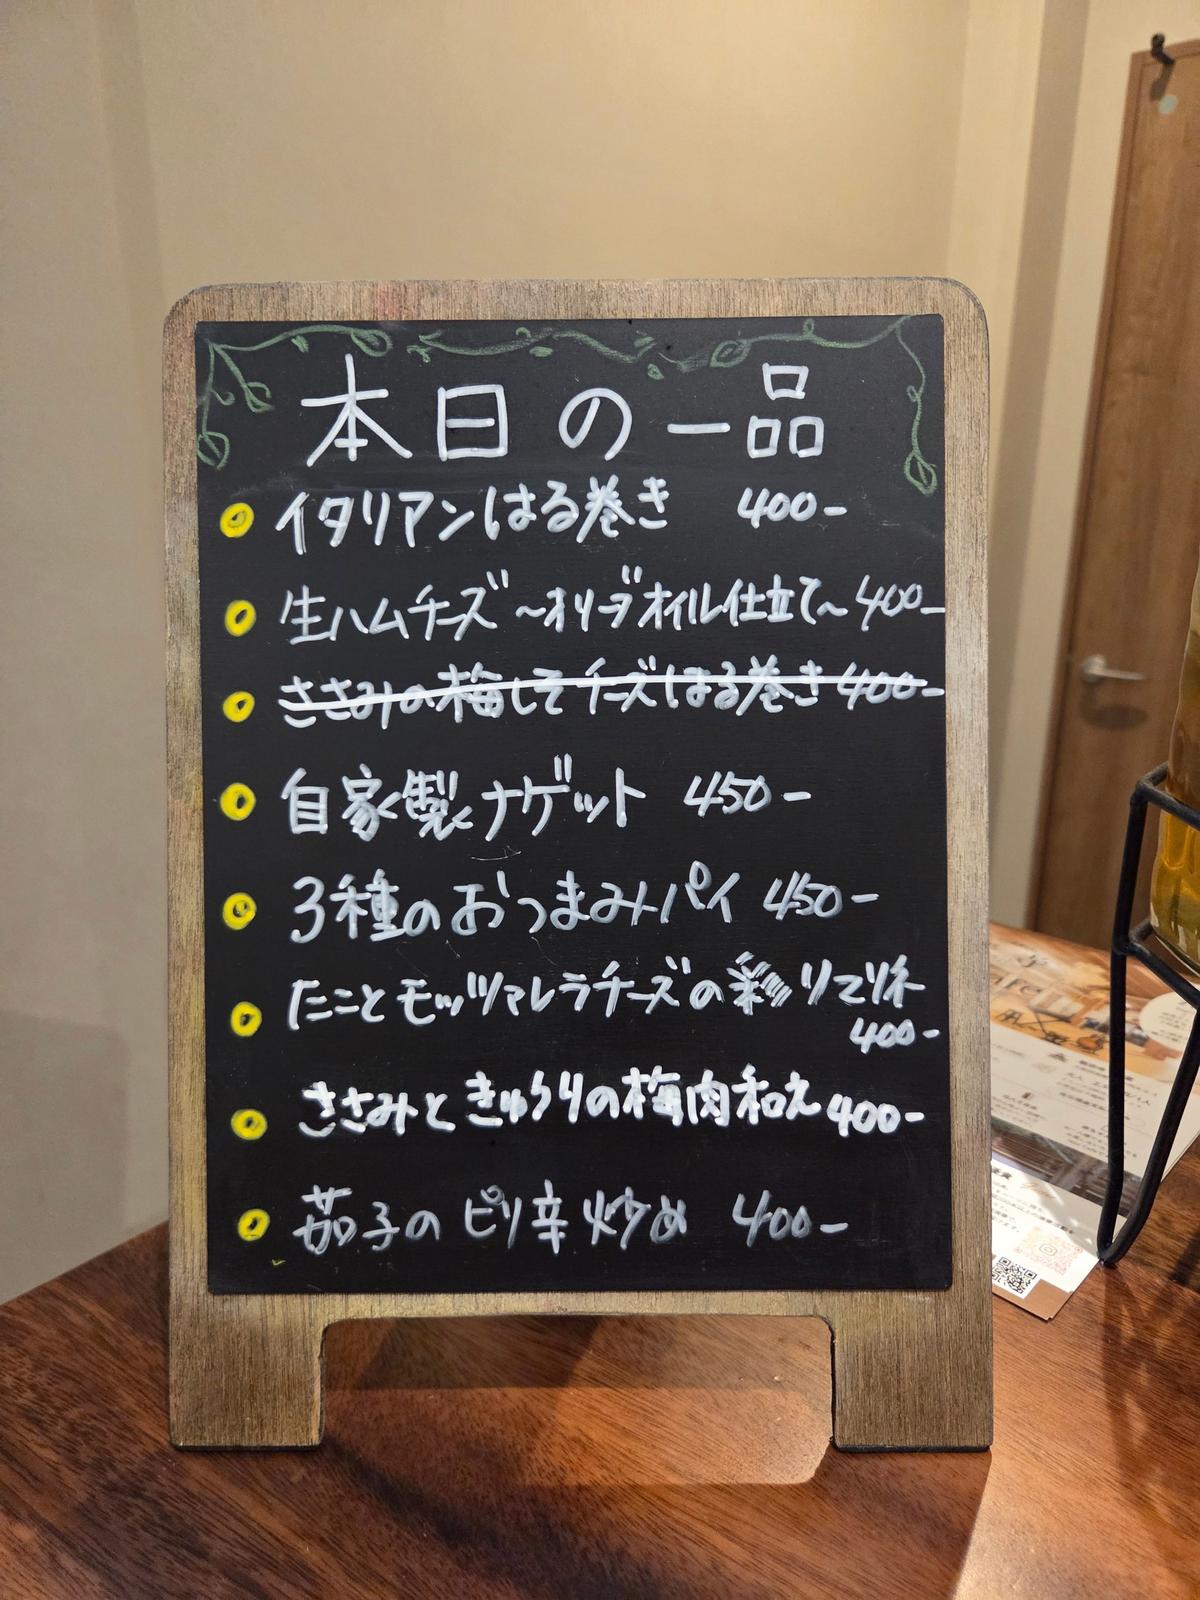 本日の一品
イタリアンはる巻き 400-
生ハムチーズ ~オリーブオイル仕立て~ 400-
ささみの梅しそチーズはる巻き 400-
自家製ナゲット 450-
3種のおつまみパイ 450-
たことモッツァレラチーズの彩りマリネ
400-
ささみときゅうりの梅肉和え 400-
茄子のピリ辛炒め 400-